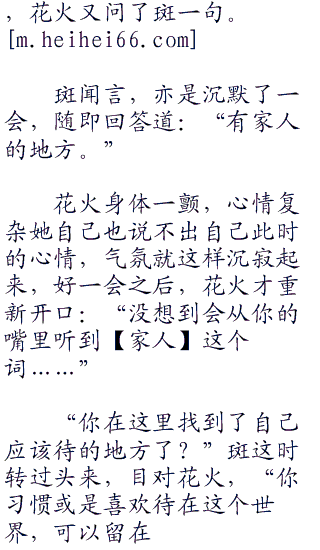 ，花火又问了斑一句。
[m.heihei66.com]
斑闻言，亦是沉默了一
会，随即回答道：“有家人
的地方。”
花火身体一颤，心情复
杂她自己也说不出自己此时
的心情，气氛就这样沉寂起
来，好一会之后，花火才重
新开口：“没想到会从你的
嘴里听到【家人】这个
词……”
“你在这里找到了自己
应该待的地方了？”斑这时
转过头来，目对花火，“你
习惯或是喜欢待在这个世
界，可以留在